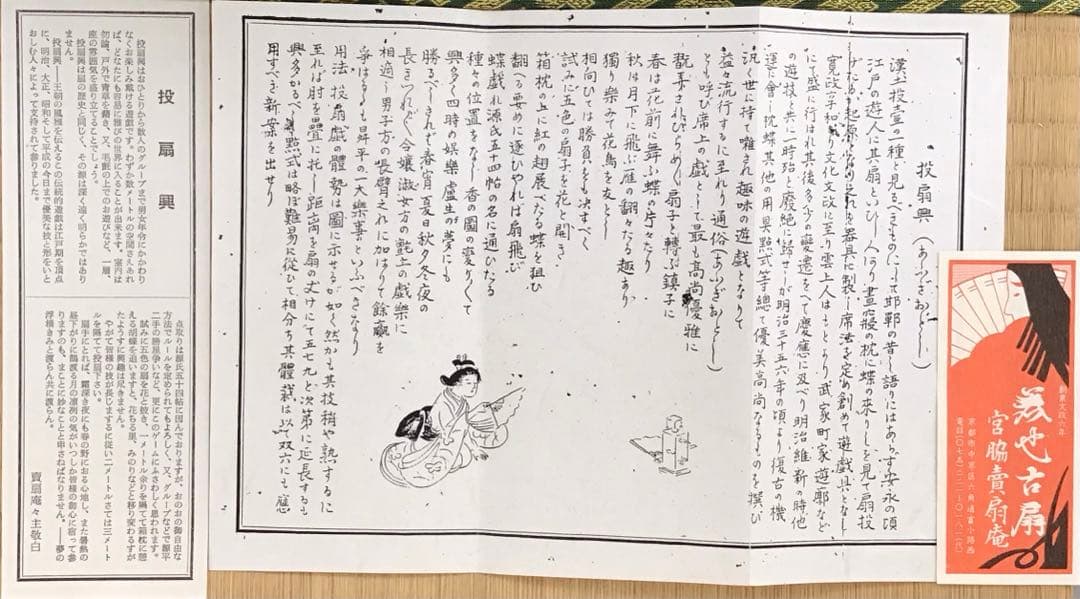 創業文政六年
美也古扇
宮脇賣扇庵
京都市中京区六角通富小路西
電話(〇七五)二二一-〇一八一(代)
投扇興(あふぎおとし)
漢土投壺の一種と見るべきものにして邯鄲の昔し語りにはあらず安永の頃
江戸の遊人に其扇といひし人ありて晝寝の枕に蝶の来りしを見て扇投
げたるが起原となりこれを器具に製し席法を定め創めて遊戯具となし
寛政享和より文化文政に至り雲上人はもとより武家町家遊廓など
にて盛に行はれ其後多少の變遷をへて慶應に及べり明治維新の時他
の遊技と共に一時殆と廢絶に歸せしが明治三十五六年の頃より復古の機
運に會し枕蝶其他の用具點式等總て優美高尚なるものを撰び
汎く世に持て囃され趣味の遊戯となりて
益々流行するに至れり通俗(あふぎおとし)
とも呼び席上の戯として最も高尚優雅に
翫弄されひらめく扇子と轉ぶ鎮子に
春は花前に舞ふ蝶の片々たり
秋は月下に飛ぶ雁の翻たる趣あり
獨り樂みて花鳥を友とし
相向ひては勝負をも決すべく
試みに五色の扇子を花と開き
箱枕の上に紅の翅展べたる蝶を狙ひ
翻へる要めに逐ひやれば扇飛び
蝶戯れ源氏五十四帖の名に通ひたる
種々の位置をなし香の圖の變りくて
興多く四時の娯樂盧生の夢にも
勝るべしされば春宵夏日秋夕冬夜の
長きつれづれ令嬢淑女方の氈上の戯樂に
相適し男子方の長臂之れに加はりて餘
爭はるゝも昇平の一大樂事といふべきなり
用法 投扇戯の體勢は圖に示せるが如く然かも其技稍や熟するに
至れば肘を疊に托し距離を扇の丈けにて五七九と次第に延長するも
興多かるべし點式は略ぼ難易に從ひて相分ち其體裁は以て双六にも應
用すべき新案を出せり
投扇興
投扇興はおひとりから数人のグループまで男女年令にかかわり
なくお楽しみ戴ける遊戯です。わずか数メートルの空間さえあれ
ば、どなたにも容易に雅びの世界に入ることが出来ます。室内は
勿論、戸外で青草を藉き、又、毛氈の上でのお遊びなど、一層、
座の雰囲気を盛り立てることでしょう。
投扇興は扇の歴史と同じく、その源は深く遠く明らかではあり
ません。
投扇興――王朝の風雅を伝えるこの伝統的遊戯は江戸期を頂点
に、明治、大正、昭和そして平成の今日まで優美な技と形をいと
おしむ人々によって支持されて参りました。
点取りは源氏五十四帖に因んでおりますが、おのおの御自由な
方法でルールを定められてもよろしく、又、グループなどで源平
二手の勝星争いなど、更にこのゲームにふさわしく思われます。
試みに五色の扇を花と放き、一メートル余りを隔てて箱枕に憩
える胡蝶を追いますと、花ちる里、みのりなどと移り変わるすが
たようすに興趣は尽きません。
やがて皆様の技が長じますに従い二メートルさては三メート
ルを隔てて投扇下さい。
扇手にとれば、霜深き夜にも春の野に在る心地し、また暑熱の
昼下がりに鶴渡る月の凍冽の気がいつしか皆様の御心に宿って参
りますのも、まことに妙なことと申さねばなりません。――夢の
浮橋きみと渡らん共に渡らん。
賣扇庵々主敬白